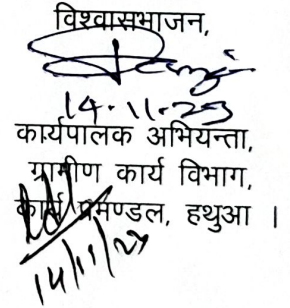 विश्वासभाजन,
14.11.25
कार्यपालक अभियन्ता,
ग्रामीण कार्य विभाग,
कार्य प्रमण्डल, हथुआ ।
14/11/25